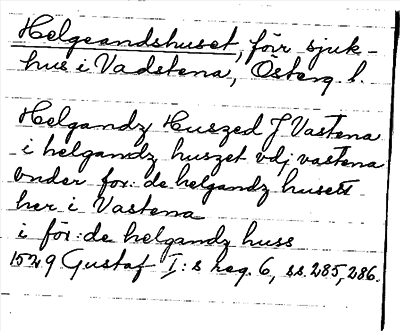 Helgeandshuset, förr sjuk-
hus i Vadstena, Österg. l.
Helgandz Huszed J Vastena
i helgandz huszet vdj vastena
vnder for: de helgandz husett
her i Vastena
i för: de helgandz huss
1529 Gustaf I:s reg. 6, ss. 285, 286.